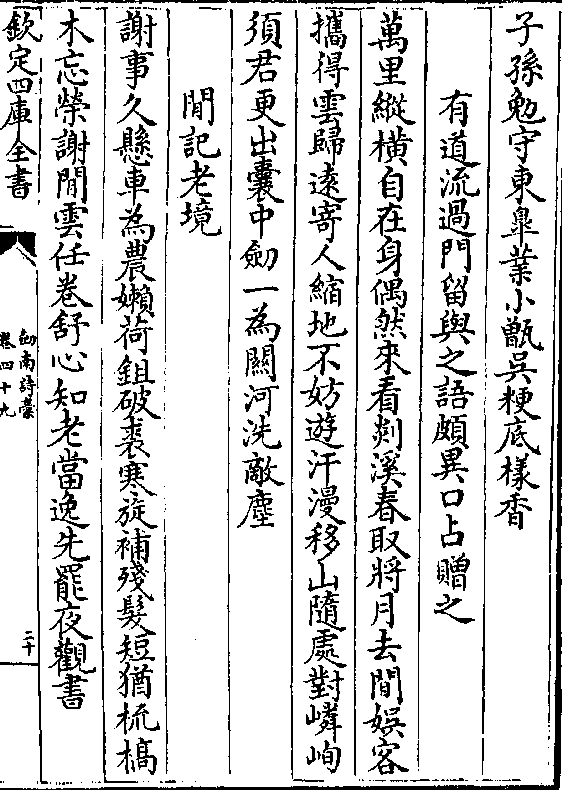 子孫勉守東臯業小甑吳粳底樣香
有道流過門留與之語頗異口占贈之
萬里縱橫自在身偶然來看剡溪春取將月去閒娛客
攜得雲歸遠寄人縮地不妨遊汗漫移山隨處對嶙峋
須君更出囊中劒一為關河洗敵塵
閒記老境
謝事久懸車為農嬾荷鉏破裘寒旋補殘髮短猶梳槁
木忘榮謝閒雲任卷舒心知老當逸先罷夜觀書
欽定四庫全書
劒南詩藁
卷四十九
二十